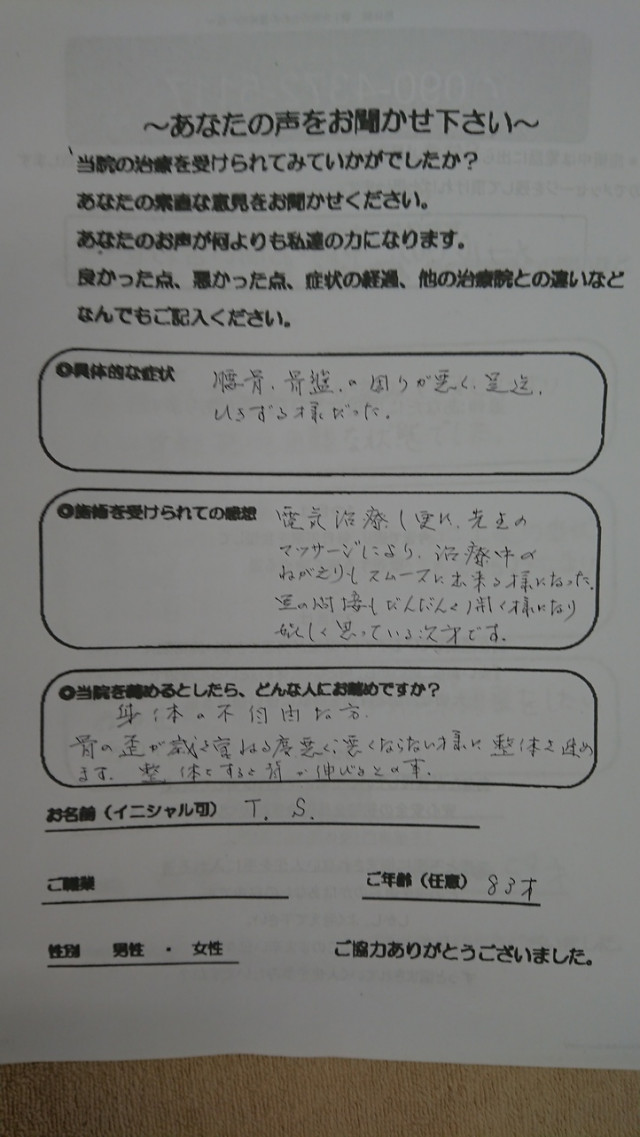 ～あなたの声をお聞かせ下さい～
当院の治療を受けられてみていかがでしたか？
あなたの率直な意見をお聞かせください。
あなたのお声が何よりも私達の力になります。
良かった点、悪かった点、症状の経過、他の治療院との違いなど
なんでもご記入ください。
●具体的な症状
腰骨、骨盤の回りが悪く、足迄、
ひきずる様だった。
●施術を受けられての感想
電気治療し更に、先生の
マッサージにより、治療中の
ねがえりもスムーズに出来る様になった。
足の間接もだんだんと開く様になり
嬉しく思っている次才です。
●当院を薦めるとしたら、どんな人にお薦めですか？
身体の不自由な方.
骨の歪が歳を重ねる度悪く、悪くならない様に整体を進め
ます. 整体をすると背が伸びるとの事.
お名前（イニシャル可） T. S.
ご職業
ご年齢（任意） 83才
性別 男性 ・ 女性
ご協力ありがとうございました。